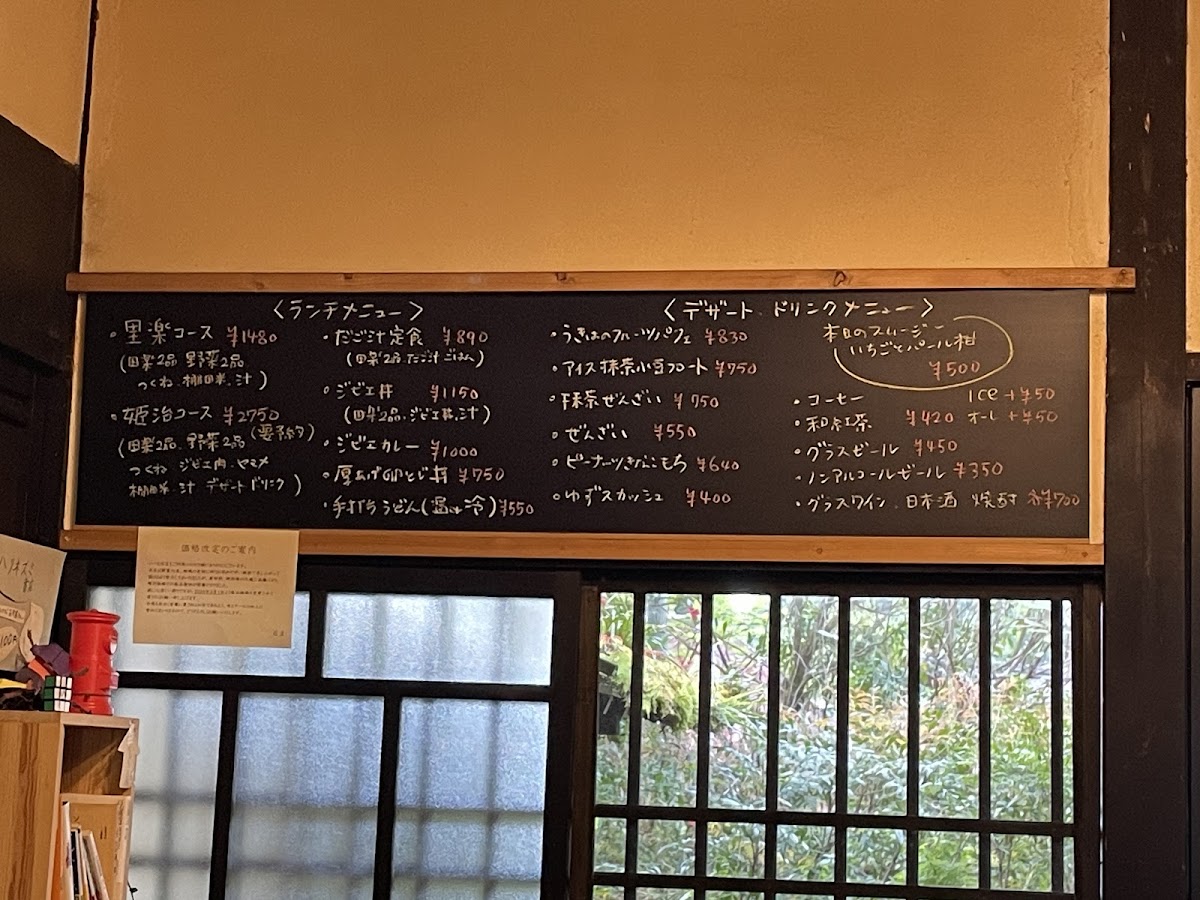 〈ランチメニュー〉
・里楽コース ¥1480
(田楽2品 野菜2品
つくね、棚田米、汁)
・姫治コース ¥2750
(要予約)
(田楽2品、野菜2品
つくね ジビエ肉、ヤマメ
棚田米、汁 デザートドリンク)
・だご汁定食 ¥890
(田楽2品、だご汁 ごはん)
・ジビエ丼 ¥1150
(田楽2品、ジビエ丼、汁)
・ジビエカレー ¥1000
・厚あげ卵とじ丼 ¥750
・手打ちうどん(温or冷) ¥550
〈デザート、ドリンクメニュー〉
・うきはのフルーツパフェ ¥830
・アイス抹茶小豆フロート ¥750
・抹茶ぜんざい ¥750
・ぜんざい ¥550
・ピーナーツきなこもち ¥640
・ゆずスカッシュ ¥400
本日のスムージー
いちごとパール柑
¥500
・コーヒー ice+¥50
・和紅茶 ¥420 オーレ+¥50
・グラスビール ¥450
・ノンアルコールビール ¥350
・グラスワイン、日本酒 焼酎 各¥700
価格改定のご案内
店主
100円